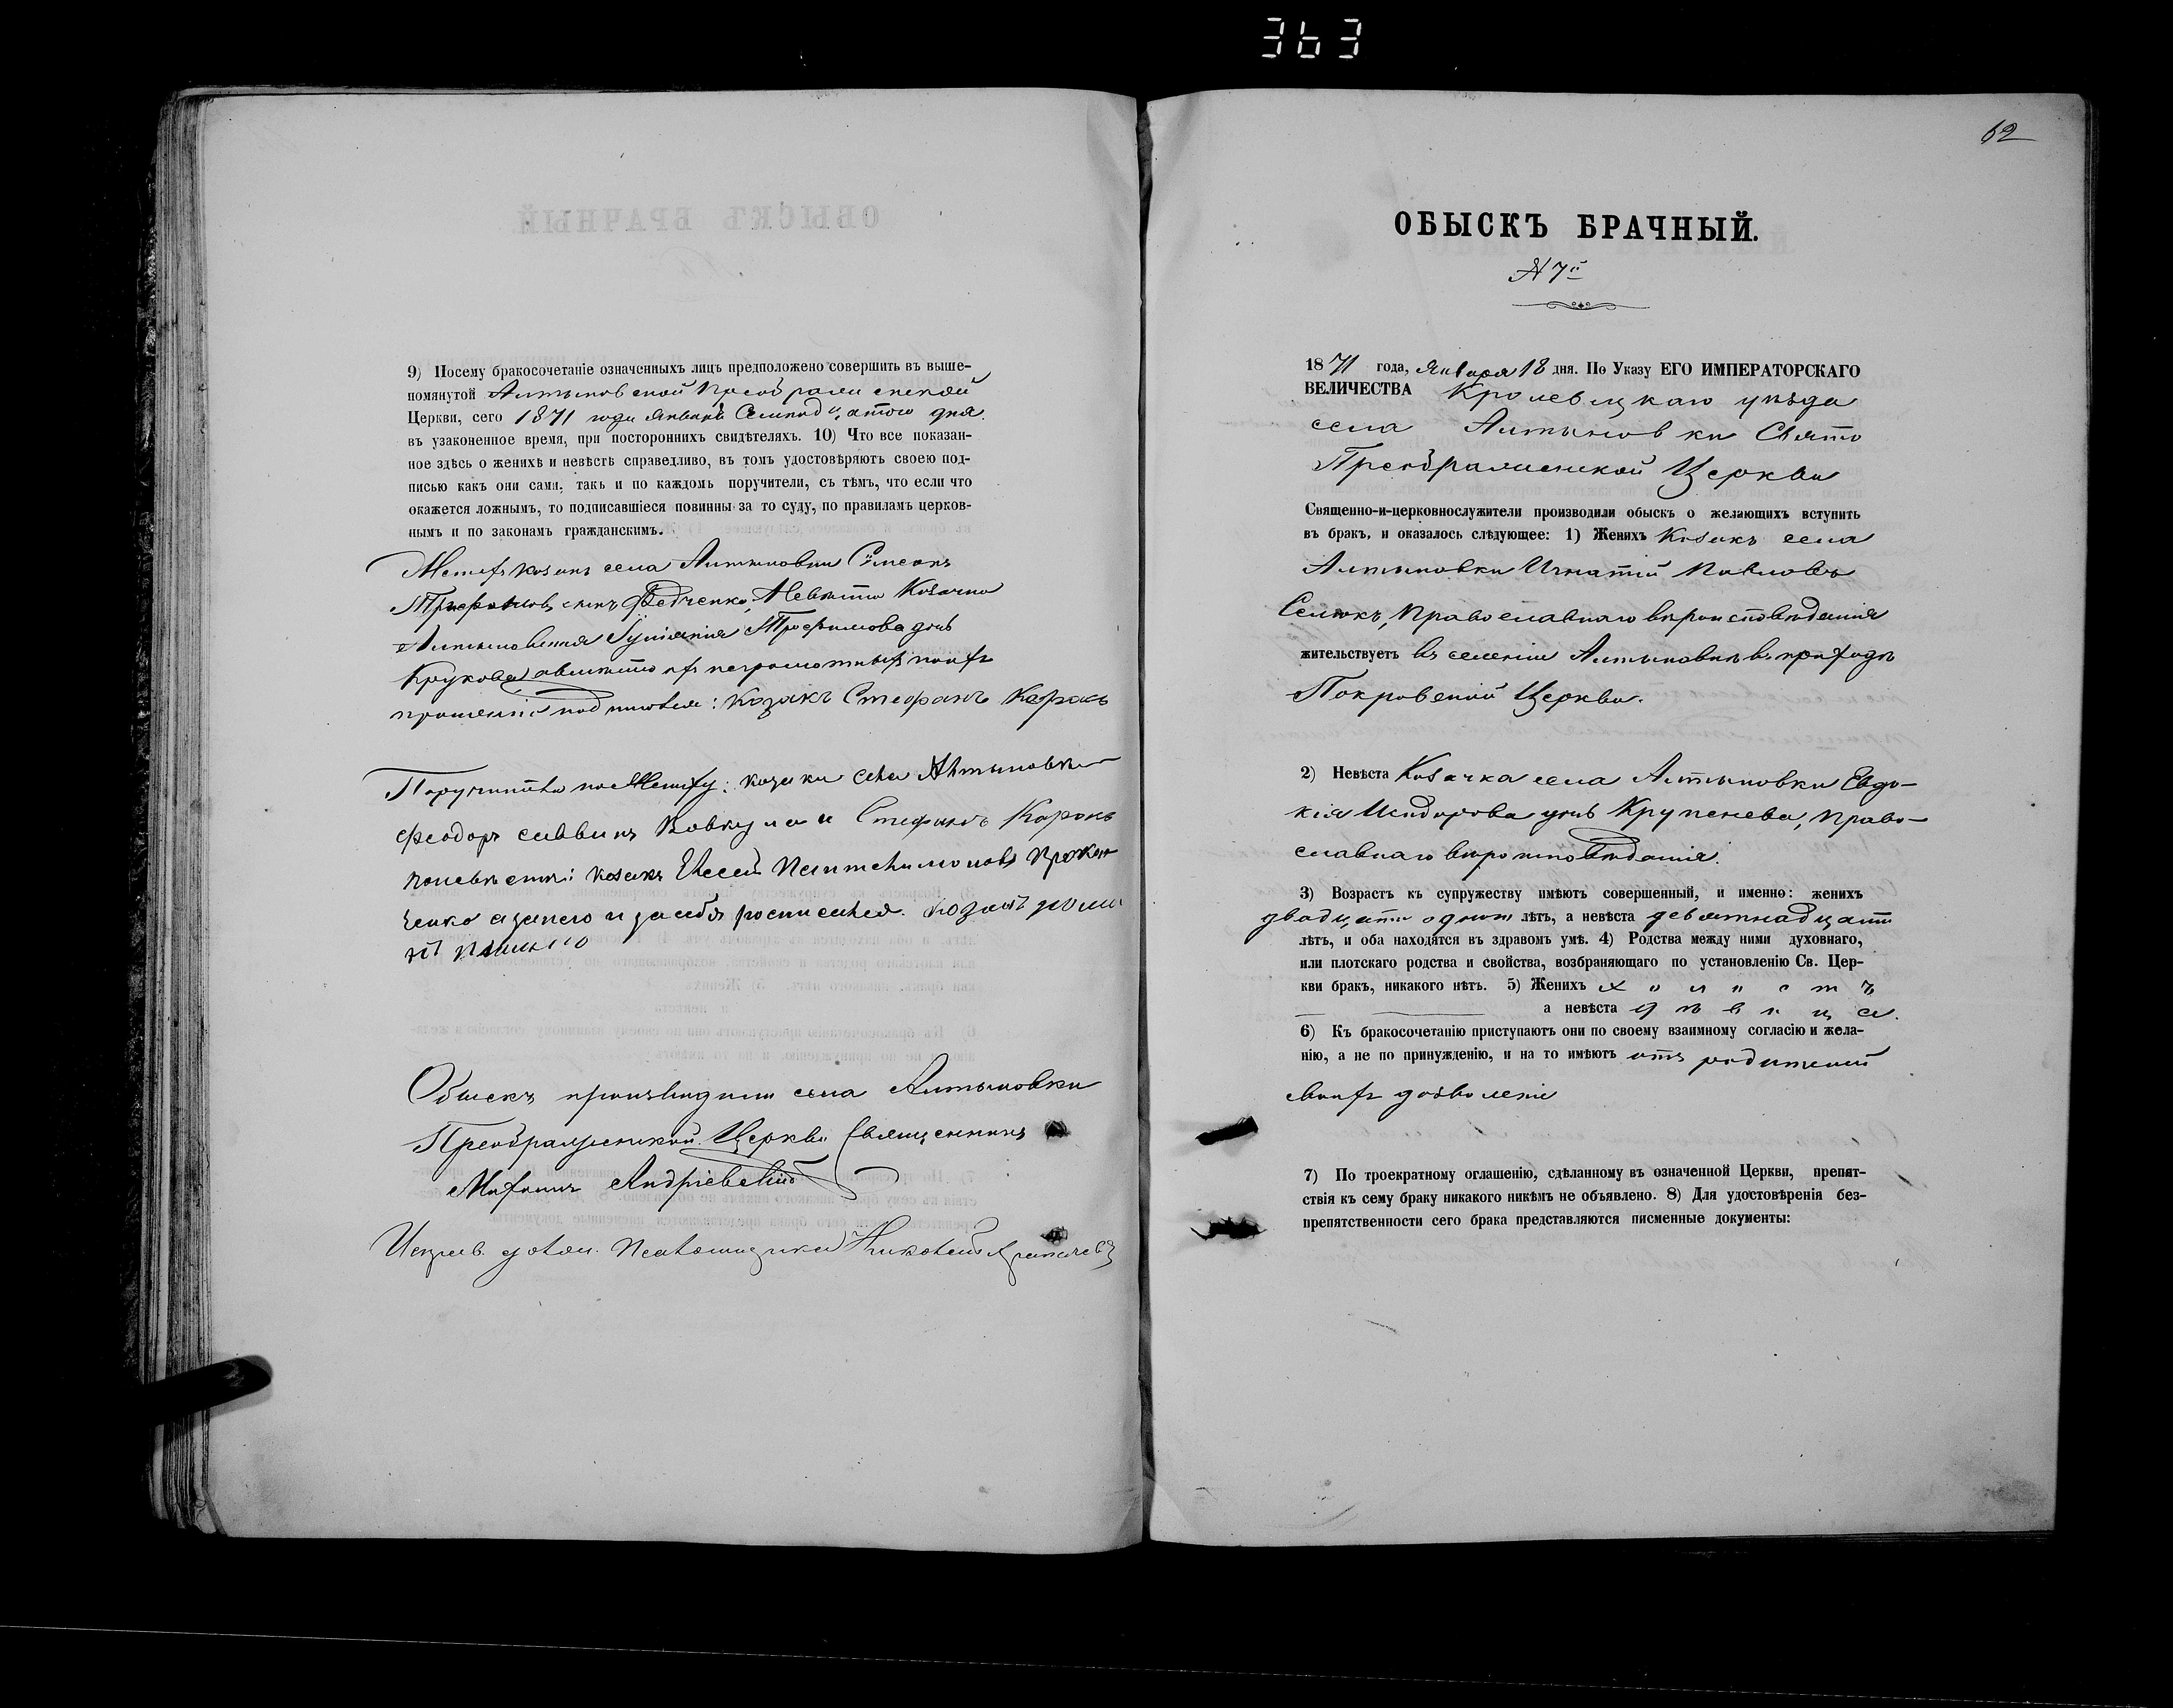 363
9) Посему бракосочетаніе означенныхъ лицъ предположено совершить въ выше-
помянутой Алтыновской Преображенской
Церкви, сего 1871 года Января Семнадцатого дня
въ узаконенное время, при постороннихъ свидѣтеляхъ. 10) Что все показан-
ное здѣсь о женихѣ и невѣстѣ справедливо, въ томъ удостовѣряютъ своею под-
писью какъ они сами, такъ и по каждомъ поручители, съ тѣмъ, что если что
окажется ложнымъ, то подписавшіеся повинны за то суду, по правиламъ церков-
нымъ и по законамъ гражданскимъ.
Женихъ козакъ села Алтыновки Сѵмеонъ
Трифоновъ сынъ Федченко, Невѣста Козачка
Алтыновская Трофимова дочь
Крукова а вмѣсто ихъ неграмотныхъ по ихъ
прошенію подписался: Козакъ Стефанъ Корокъ
Поручители по Жениху: козаки села Алтыновки
Феодоръ Саввинъ Вовкула и Стефанъ Корокъ
по невѣстѣ: козакъ Елесей Пантелимоновъ
ченко а за него и за себя росписался. козакъ
Обыскъ производили села Алтыновки
Преображенской Церкви Священникъ
Андріевскій
Исправ. должн. Псаломщика Николай
62
ОБЫСКЪ БРАЧНЫЙ.
№ 7й
1871 года, Января 18 дня. По Указу ЕГО ИМПЕРАТОРСКАГО
ВЕЛИЧЕСТВА Кролевецкаго уѣзда
села Алтыновки Свято
Преображенской Церкви
Священно-и-церковнослужители производили обыскъ о желающихъ вступить
въ бракъ, и оказалось слѣдующее: 1) Женихъ Козакъ села
Алтыновки Игнатій Павловъ
Семокъ, Православнаго вѣроисповѣданія
жительствуетъ въ селеніи Алтыновкѣ въ приходѣ
Покровской Церкви.
2) Невѣста Козачка села Алтыновки Евдо-
кія Исидорова дочь Крупенева, право-
славнаго вѣроисповѣданія.
3) Возрастъ къ супружеству имѣютъ совершенный, и именно: женихъ
двадцати одного лѣтъ, а невѣста девятнадцати
лѣтъ, и оба находятся въ здравомъ умѣ. 4) Родства между ними духовнаго,
или плотскаго родства и свойства, возбраняющаго по установленію Св. Цер-
кви бракъ, никакого нѣтъ. 5) Женихъ холостъ
а невѣста дѣвица.
6) Къ бракосочетанію приступаютъ они по своему взаимному согласію и жела-
нію, а не по принужденію, и на то имѣютъ отъ родителей
своихъ дозволеніе
7) По троекратному оглашенію, сдѣланному въ означенной Церкви, препят-
ствія къ сему браку никакого никѣмъ не объявлено. 8) Для удостовѣренія без-
препятственности сего брака представляются писменные документы: